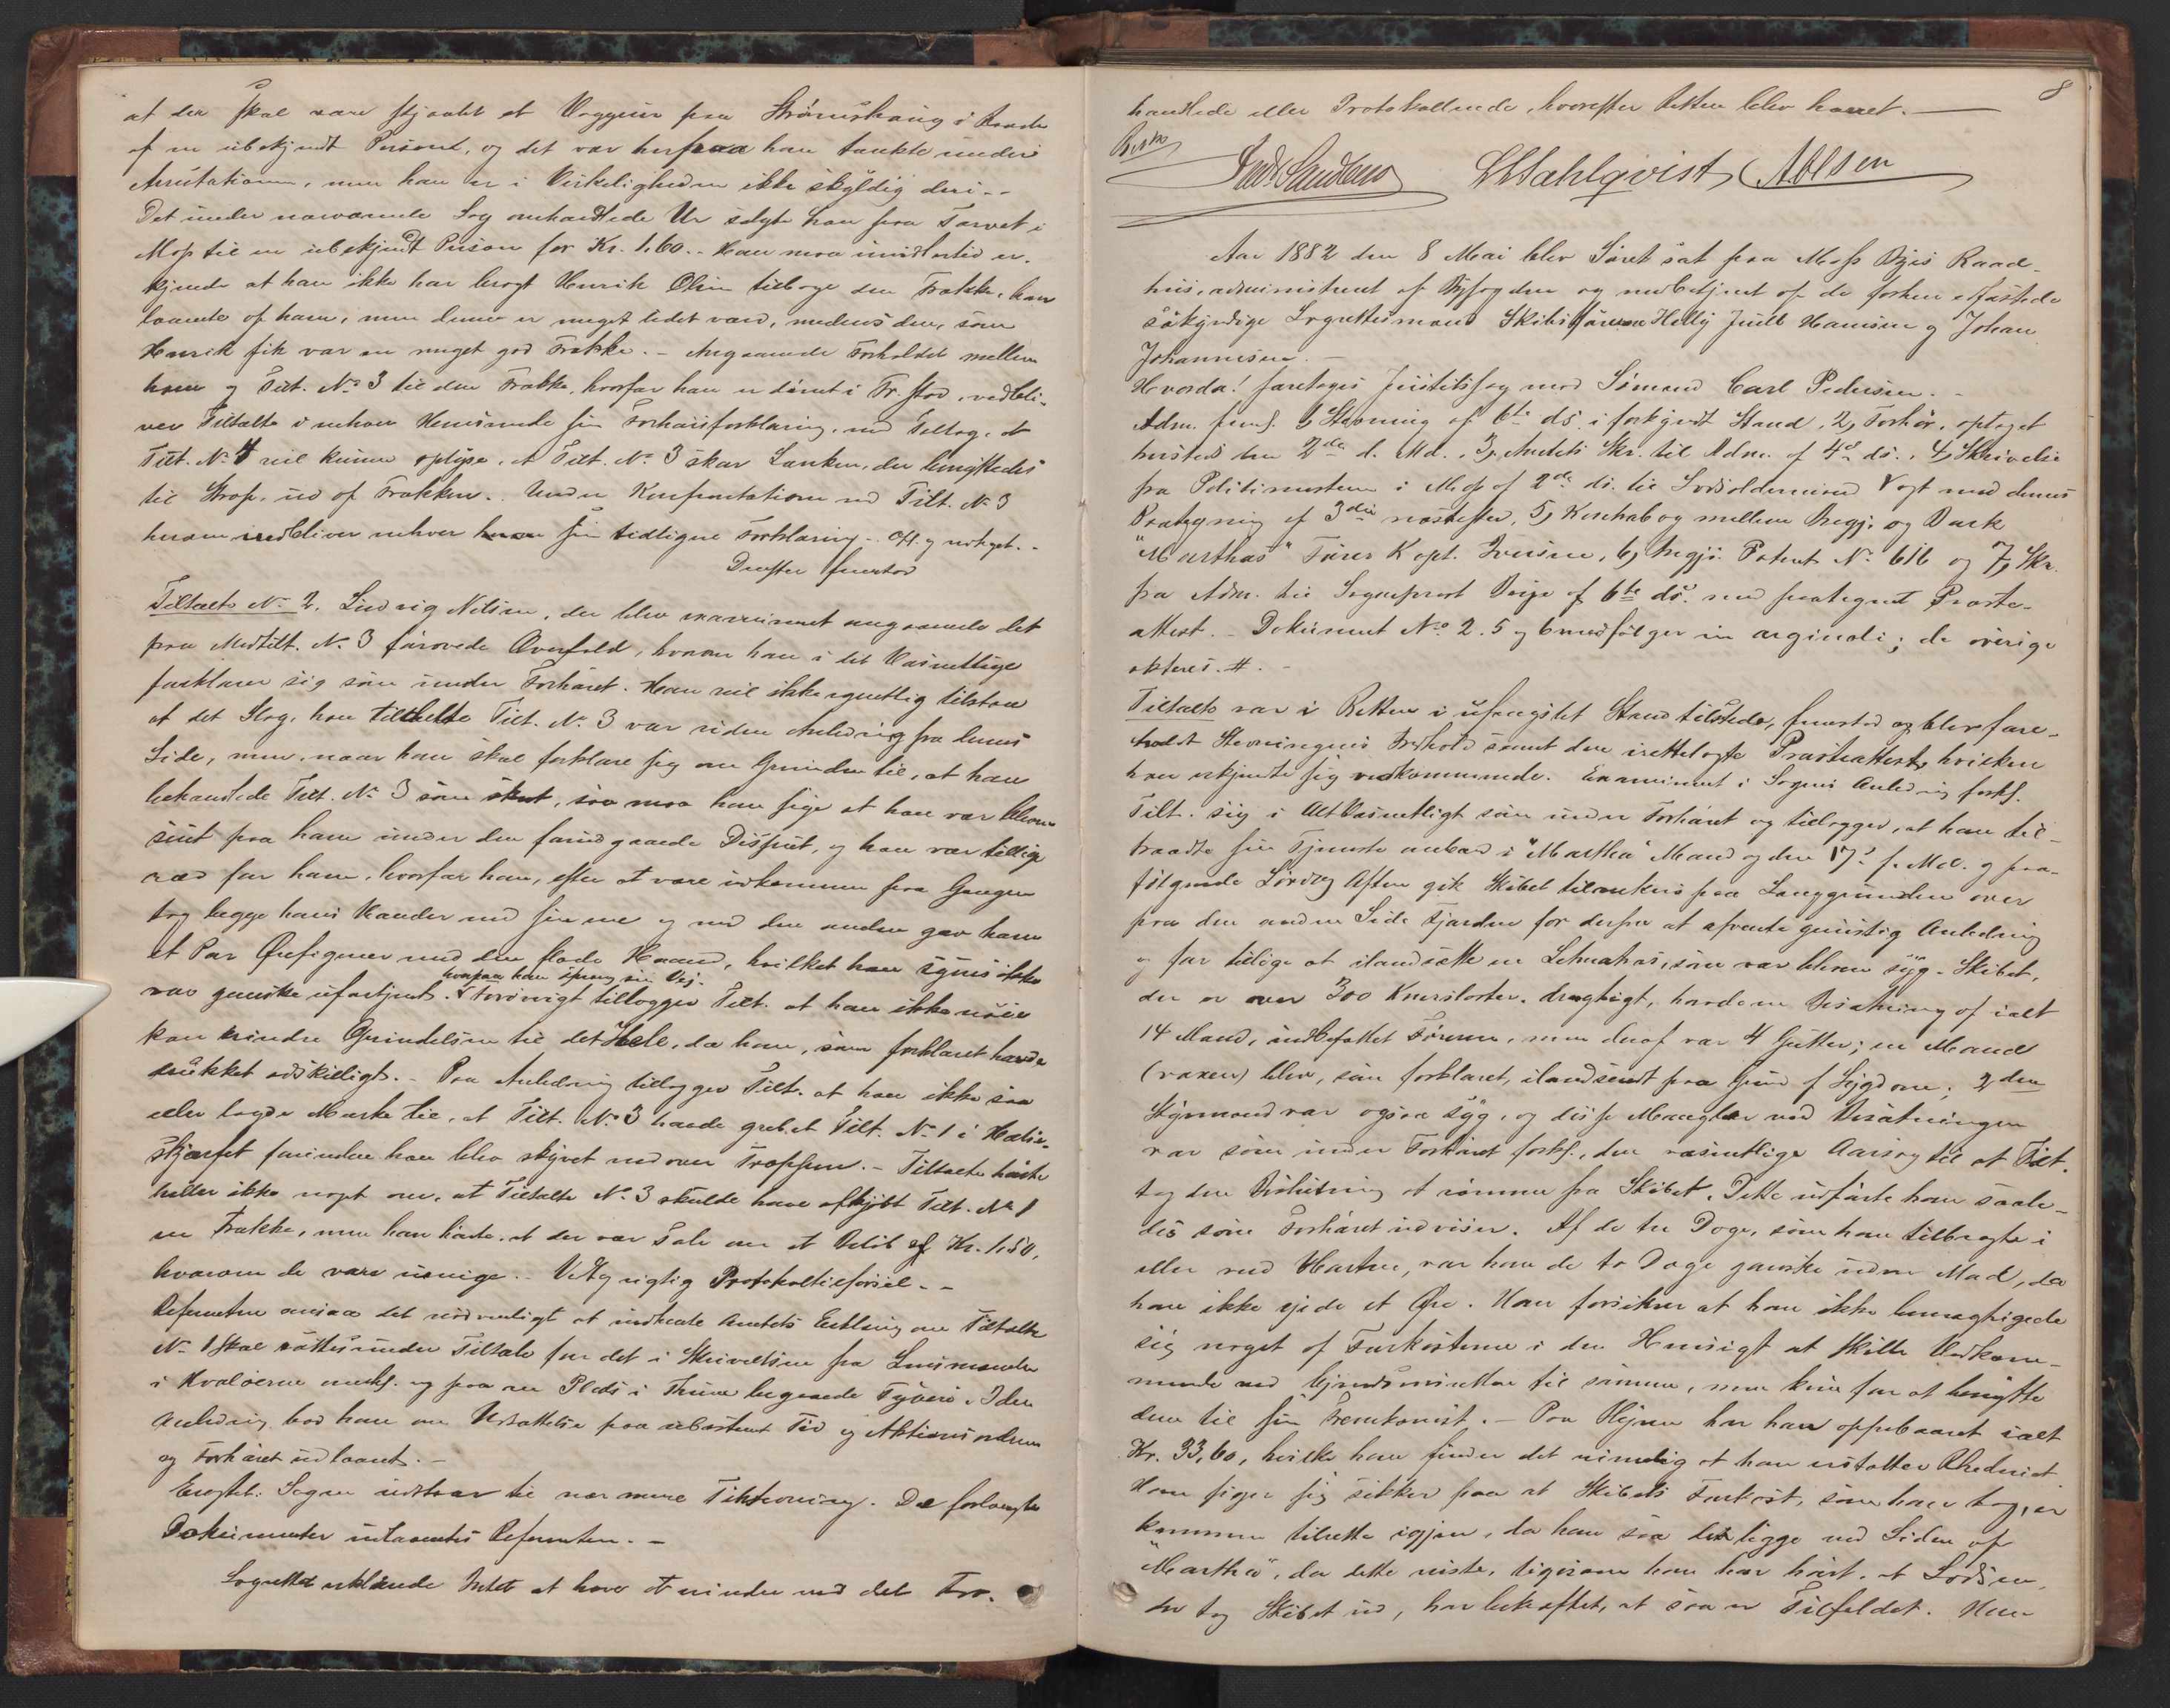 at der skal være stjaalet et Væggeur fra Strømshaug i Raade
af en ubekjendt Person, og det var herpaa han tænkte under
Arrestationen, men han er i Virkeligheden ikke skyldig deri. -
Det under nærværende Sag omhandlede Ur solgte han paa Torvet i
Moss til en ubekjendt Person for Kr. 1,60. - Han maa imidlertid er-
kjende at han ikke har bragt Henrik Olsen tilbage den Frakke, han
laante af ham, men denne er meget lidet værd, medens den, som
Henrik fik var en meget god Frakke. - Angaaende Forholdet mellem
ham og Tilt. No 3 til den Frakke, hvorfor han er dømt i Fr.stad, vedbli-
ver Tiltalte i enhver Henseende sin Forhørsforklaring, med Tillæg, at
Tilt. No 4 vil kunne oplyse, at Tilt. No 3 skar Lænken, der benyttedes
til Strop, ud af Frakken. Under Konfrontationen med Tilt. No 3
herom vedbliver enhver sin tidligere Forklaring. - Opl. og vedtaget. -
Derefter fremstod
Tiltalte No 2. Ludvig Nilsen, der blev examineret angaaende det
paa Medtilt. No 3 førøvede Overfald, hvorom han i det Væsentlige
forklarer sig som under Forhøret. Han vil ikke egentlig tilstaa
at det Slag, han tildelte Tilt. No. 3 var uden Anledning fra dennes
Side, men, naar han skal forklare sig om Grunden til, at han
behandlede Tilt. No 3 som skeet, saa maa han sige at han var bleven
sint paa ham under den forudgaaende Disput, og han var tillige
ræd for ham, hvorfor han, efter at være udkommen fra Gangen
tog begge hans Hænder med sin ene og med den anden gav ham
et Par Ørefigener med den flade Haand, hvilket han synes ikke
hvorpaa han sprang sin Vej.
var ganske ufortjent. Forøvrigt tillægger Tilt. at han ikke nøie
kan erindre Grundelsen til det Hele, da han, som forklaret havde
drukket adskilligt. - Paa Anledning tillægger Tilt. at han ikke saa
eller lagde Mærke til, at Tilt. No 3 havde grebet Tilt. No 1 i Hals-
skjærfet forinden han blev skjøvet nedover Trappen. - Tiltalte hørte
heller ikke noget om, at Tiltalte No 3 skulde have afkjøbt Tilt. No 1
en Frakke, men han hørte, at der var Tale om et Beløb af Kr. 1,50,
hvorom de vare uenige. - Vedtog rigtig Protokoltilførsel. -
Referenten ansaa det nødvendigt at indhente Amtets Beslutning om Tiltalte
No 1 skal sættes under Tiltale for det i Skrivelsen fra Lensmanden
i Hvaløerne omhl. og paa en Plads i Thune begaaede Tyveri. I den
Anledning bad han om Udsættelse paa ubestemt Tid og Aktionsordren
og Forhøret udlaant. -
Eragtet: Sagen udstaar til nærmere Tiltævning. De forlangte
Dokumenter udlaantes Referenten. -
Lagrettet erklærede Intet at have at erindre ved det Fra-

8
handlede eller Protokollerede, hvorefter Retten blev hævet. -
Birch Andr. Sandberg L Wahlqvist A Olsen
Aar 1882 den 8 Mai blev Søret sat paa Moss Byes Raad-
hus, administreret af Byfogden og medbetjent af de forhen edfæstede
søkyndige Lagrettesmænd Skibsfører Helly Juell Hansen og Johan
Johannesen. -
Hvorda! foretoges Justitssag mod Sømand Carl Pedersen. -
Adm. freml. 1, Stævning af 6te ds. i forkyndt Stand, 2, Forhør, optaget
hersteds den 2den d. Md., 3, Amtets Skr. til Adm. af 4de ds., 4, Skrivelse
fra Politimesteren i Moss af 2den ds. til Lodsoldermand Vogt med dennes
Paategning af 3die næstefter, 5, Kontrabog mellem Bregj. og Bark
"Marthas" Fører Kapt. Iversen, 6, Bregj. Patent No 616 og 7, Skr.
fra Adm. til Sogneprest Birge af 6te ds. med paategnet Præste-
attest. - Dokument No. 2. 5 og 6 medfølger in originali; de øvrige
akteres. #. -
Tiltalte var i Retten i ufængslet Stand tilstede, fremstod og blev fore-
holdt Stevningens Indhold samt den irettelagte Præsteattest, hvilken
han erkjendte sig vedkommende. Examineret i Sagens Anledning forkl.
Tilt. sig i Alt Væsentligt som under Forhøret og tillægger, at han til-
traadte sin Tjeneste ombord i "Martha" Mandag den 17de f. Md. og paa-
følgende Lørdag Aften gik Skibet tilankers paa Langgrunden over
paa den anden Side Fjorden for derfra at afvente gunstig Anledning
og for tillige at ilandsætte en Letmatros, som var bleven syg. Skibet,
der er over 300 Kmerslæster drægtigt, havde en Besætning af ialt
14 Mand, indbefattet Føreren, men deraf var 4 Gutter; en Mand
(voxen) blev, som forklaret, ilandsendt paa Grund af Sygdom; 2den
Styrmand var ogsaa syg, og disse Mangler ved Besætningen
var som under Forhøret forkl., den væsentlige Aarsag til at Tilt.
tog den Beslutning at rømme fra Skibet. Dette udførte han saale-
des som Forhøret udviser. Af de tre Dage, som han tilbragte i
eller ved Hasten, var han de to Dage ganske uden Mad, da
han ikke eiede et Øre. Han forsikrer at han ikke bemægtigede
sig noget af Farkosterne i den Hensigt at skille Vedkom-
mende ved Ejendomsretten til samme, men kun for at benytte
den til sin Fremkomst. - Paa Hyren har han oppebaaret ialt
Kr. 33,60, hvilke han finder det rimelig at han erstatter Rhederiet
Han siger sig sikker paa at Skibets Farkost, som han tog, er
kommen tilrette igjen, da han saa den ligge ved Siden af
"Martha", da dette reiste, ligesom han har hørt, at Lodsen,
der tog Skibet ud, har bekræftet, at saa er Tilfældet. Han